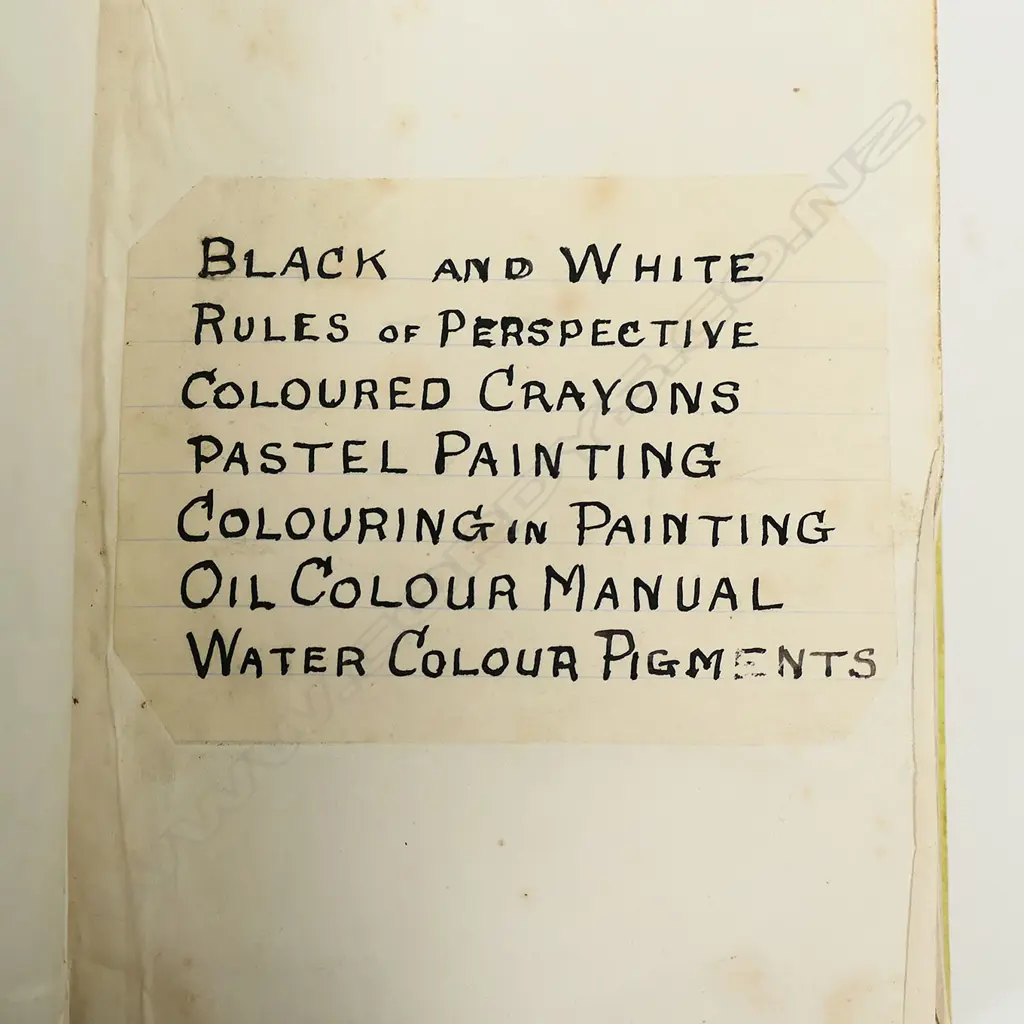 BLACK AND WHITE
RULES OF PERSPECTIVE
COLOURED CRAYONS
PASTEL PAINTING
COLOURING IN PAINTING
OIL COLOUR MANUAL
WATER COLOUR PIGMENTS